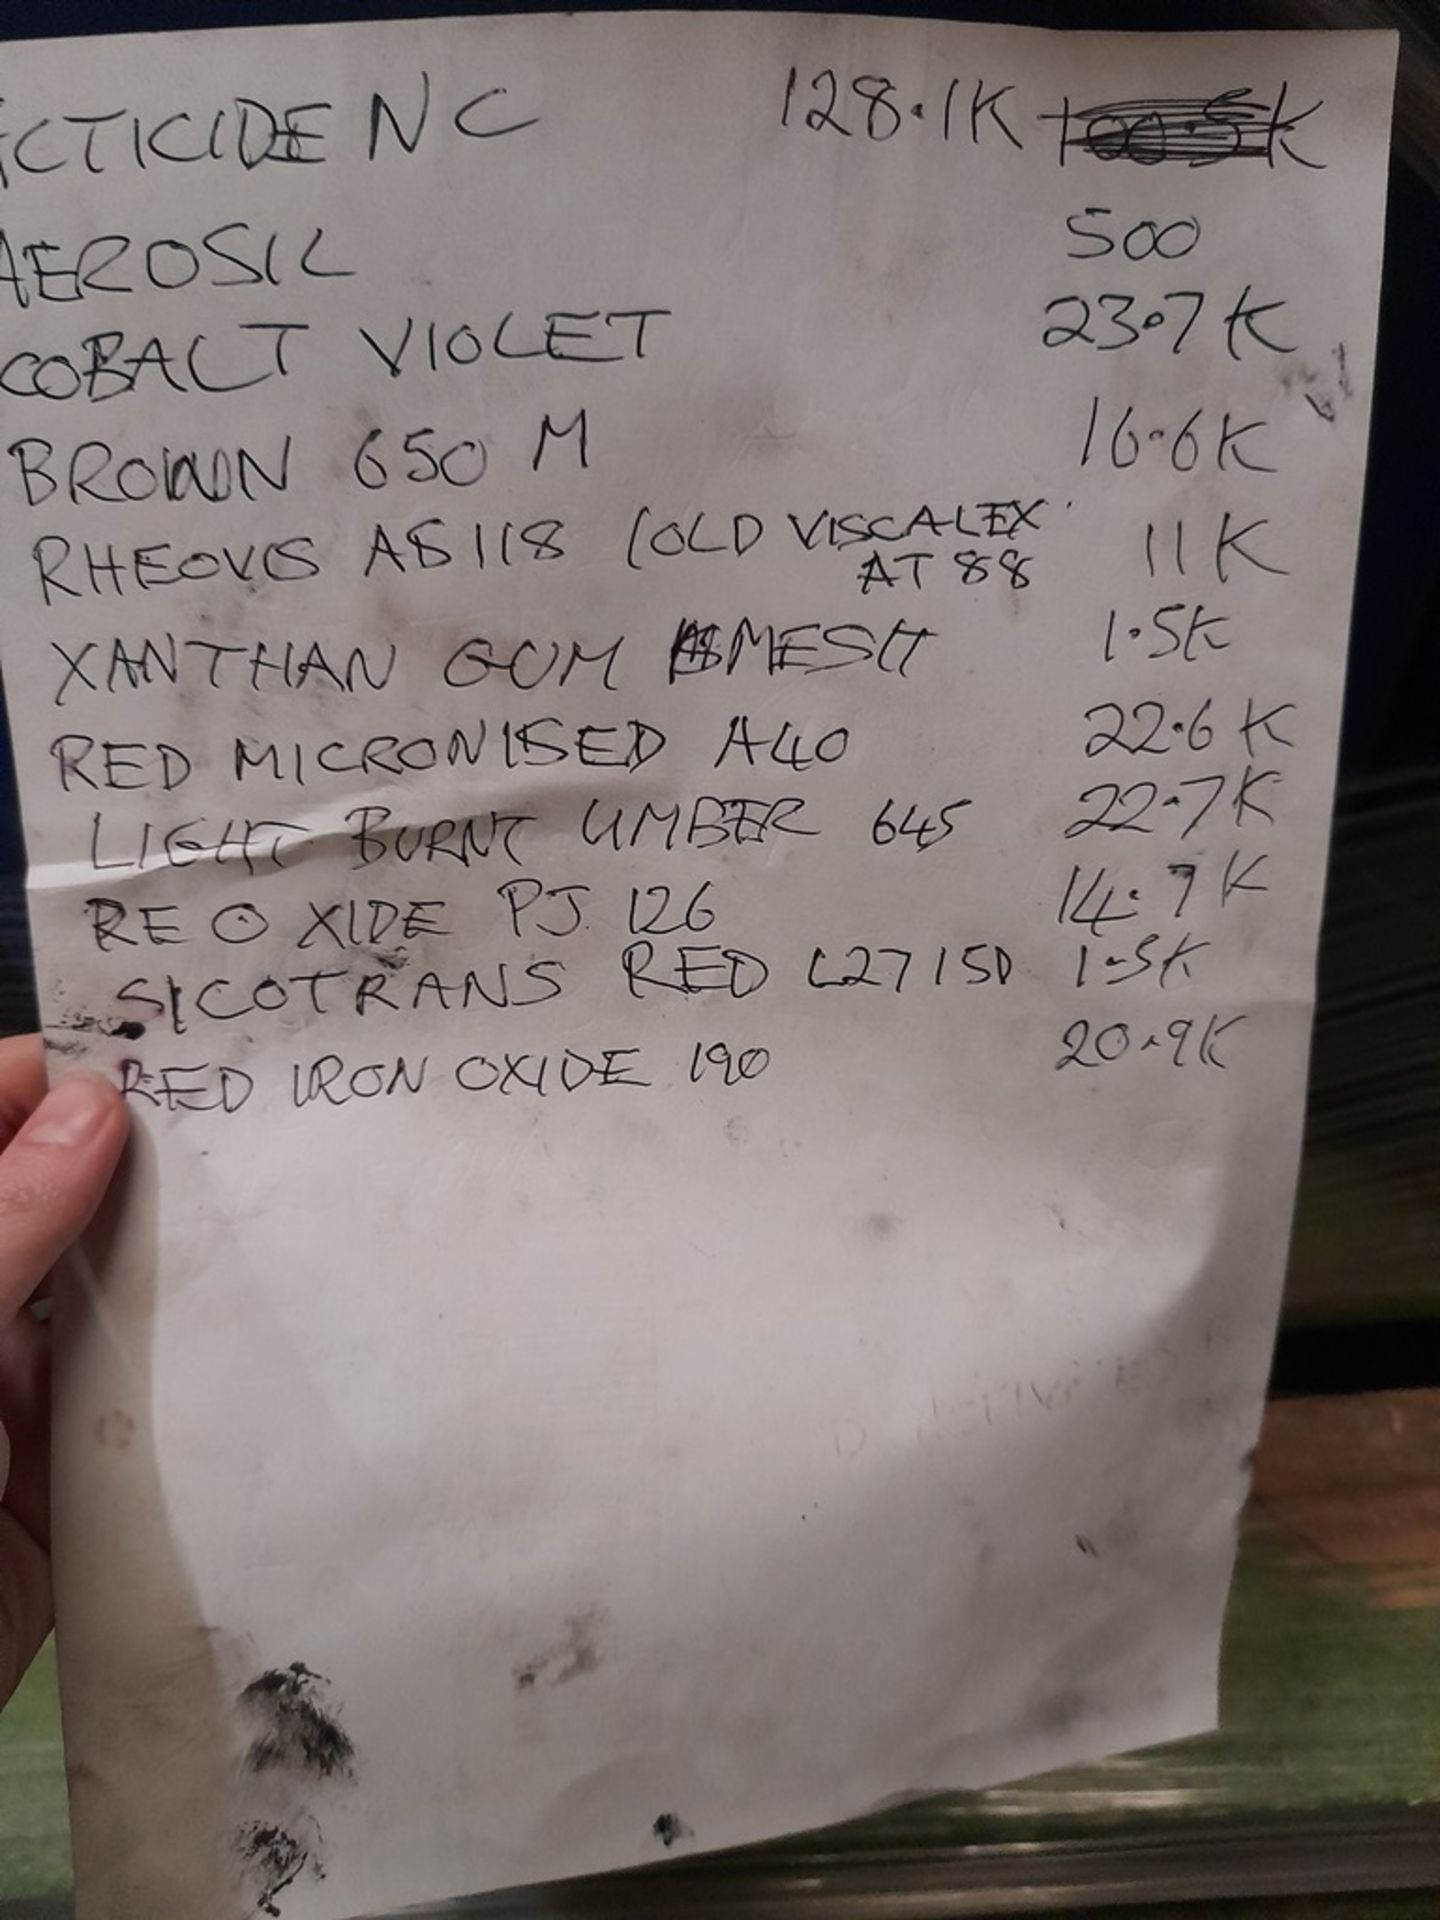 ACTICIDE NC 128.1K
AEROSIL 500
COBALT VIOLET 23.7K
BROWN 650 M 16.6K
RHEOVIS AS118 (OLD VISCALEX 11K
AT 88
XANTHAN GUM MESH 1.5K
RED MICRONISED A40 22.6K
LIGHT BURNT UMBER 645 22.7K
RE OXIDE PJ 126 14.7K
SICOTRANS RED L2715D 1.5K
RED IRON OXIDE 190 20.9K